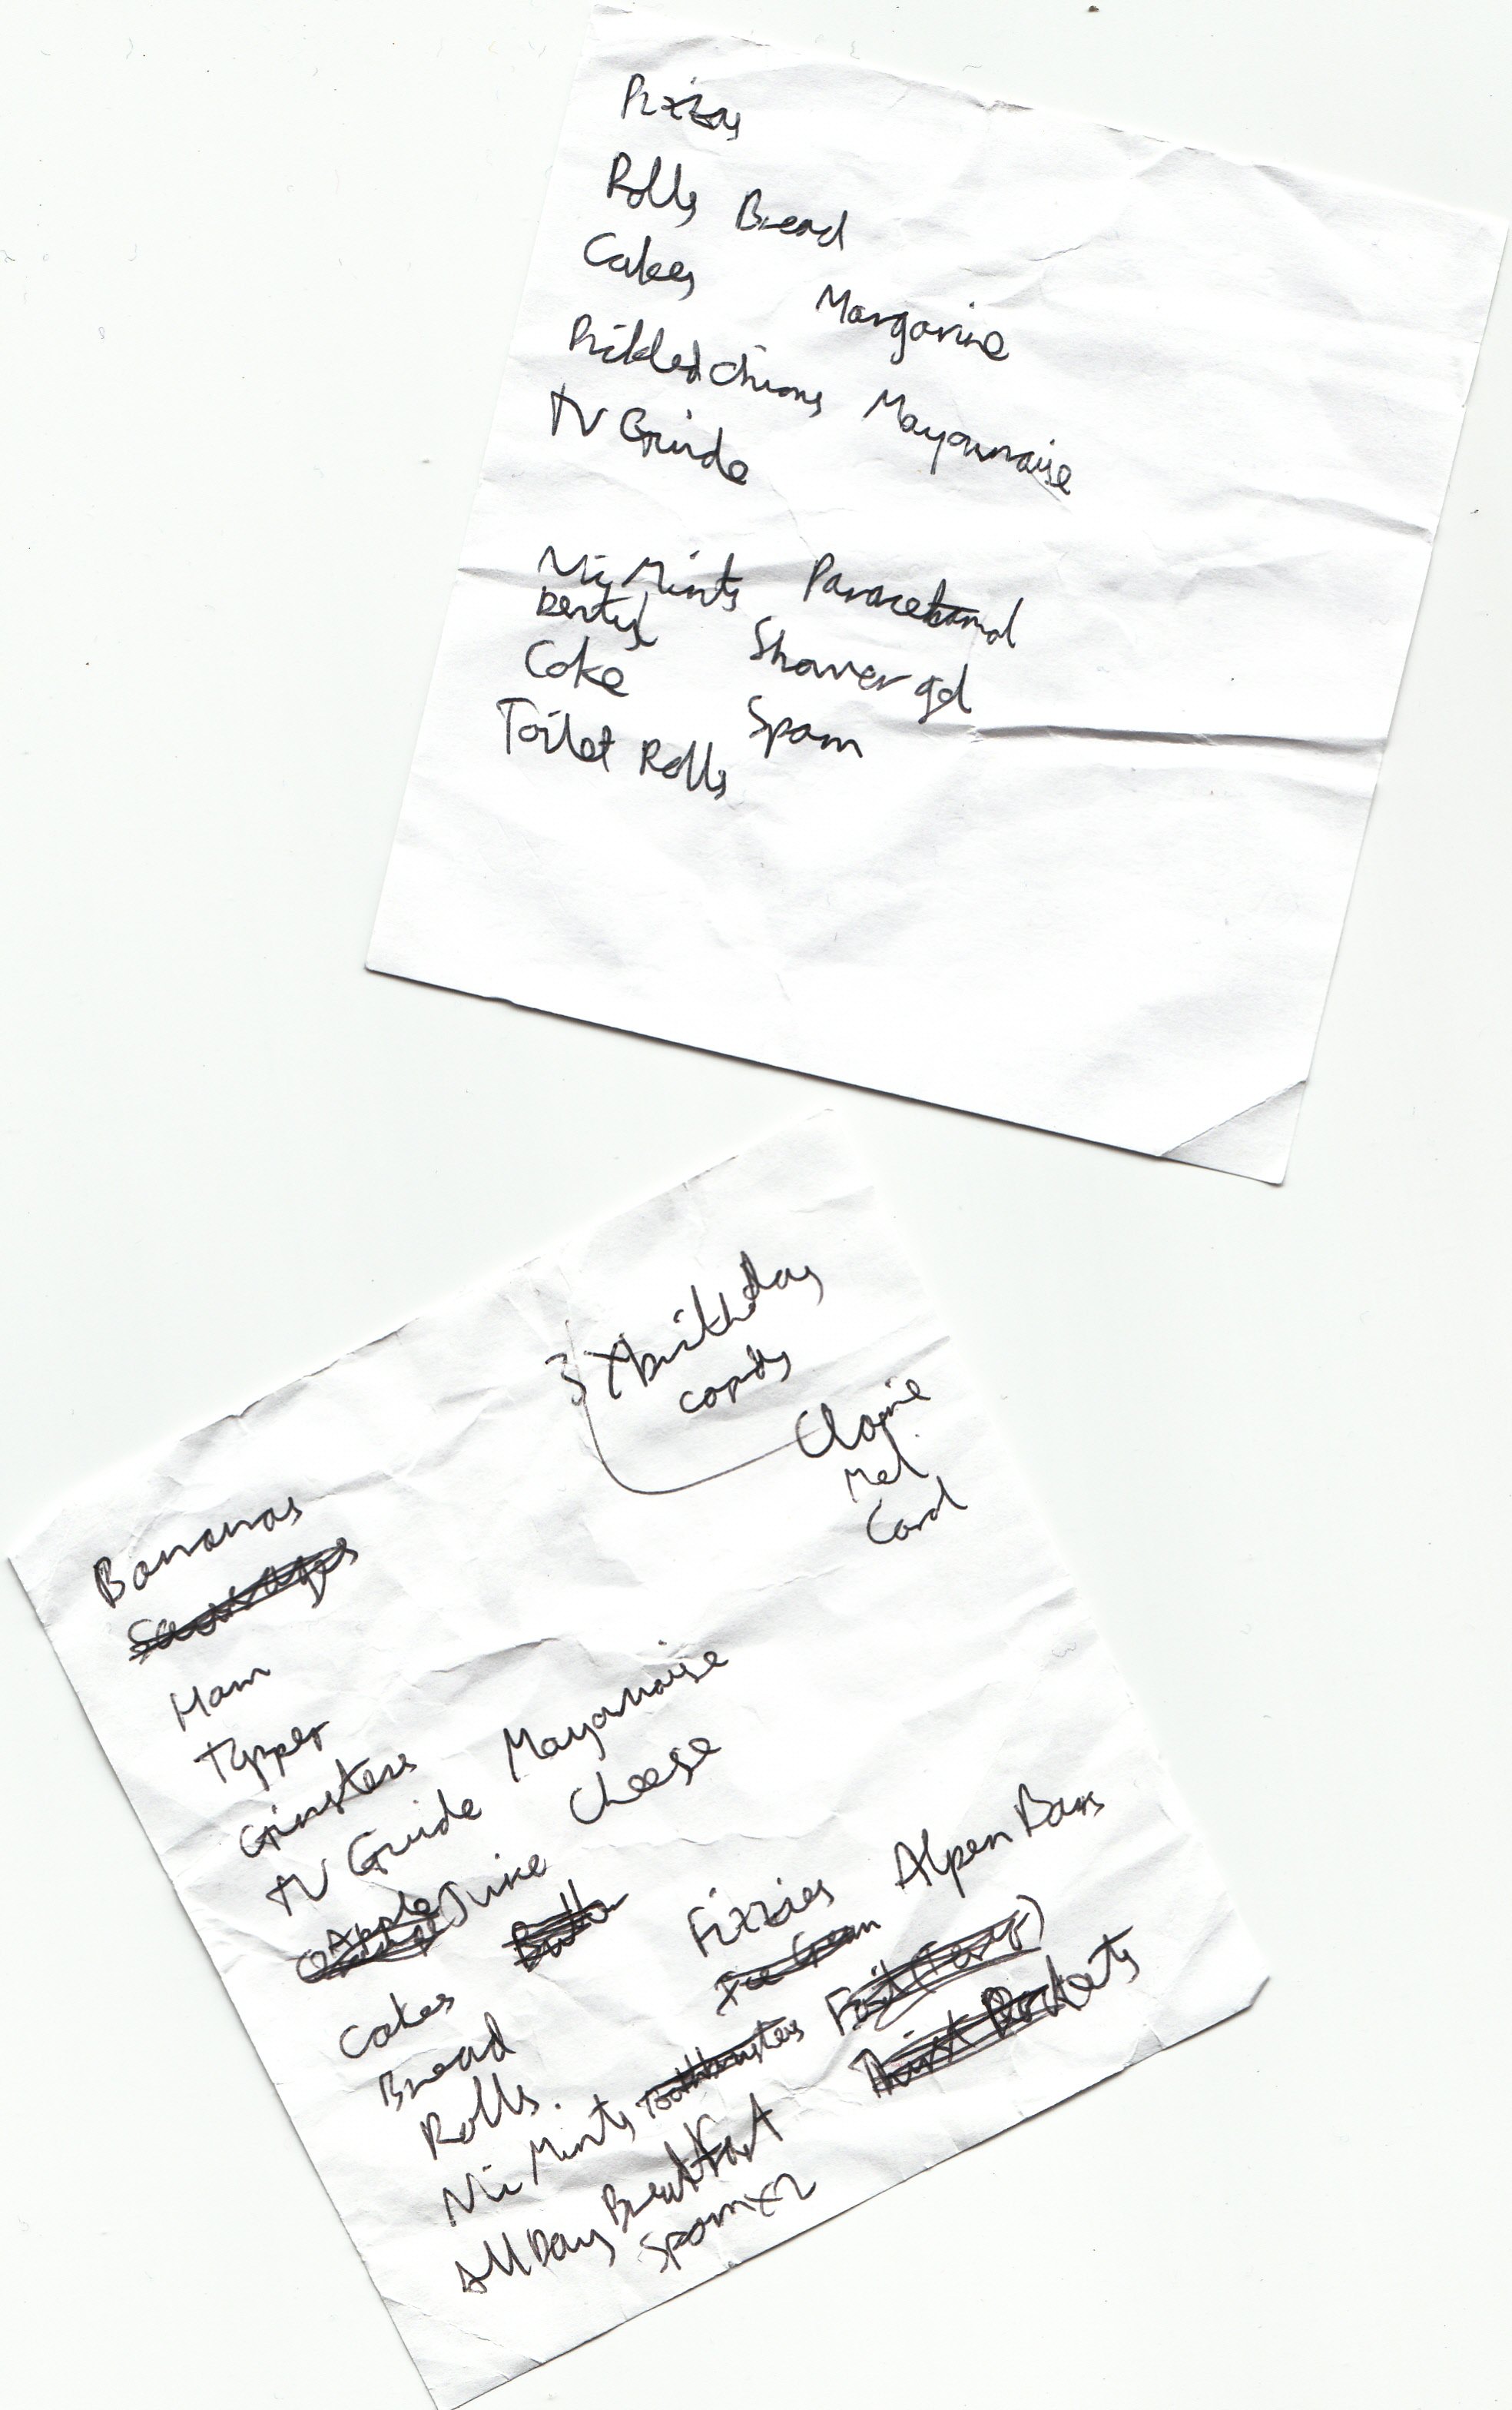 Pizzas
Rolls Bread
Cakes Margarine
Pickled Onions Mayonnaise
TV Guide
Nic Mints Paracetamol
Dentyl Shower gel
Coke Spam
Toilet Rolls
3 X birthday
cards
Claire
Mel
Carol
Bananas
Sausages
Ham
Ginsters Mayonnaise
TV Guide Cheese
Apple Juice
Butter
Fizzies Alpen Bars
Ice Cream
Cakes
Bread
Rolls.
Nic Mints Toothbrushes
All Day Breakfast
Spam x 2